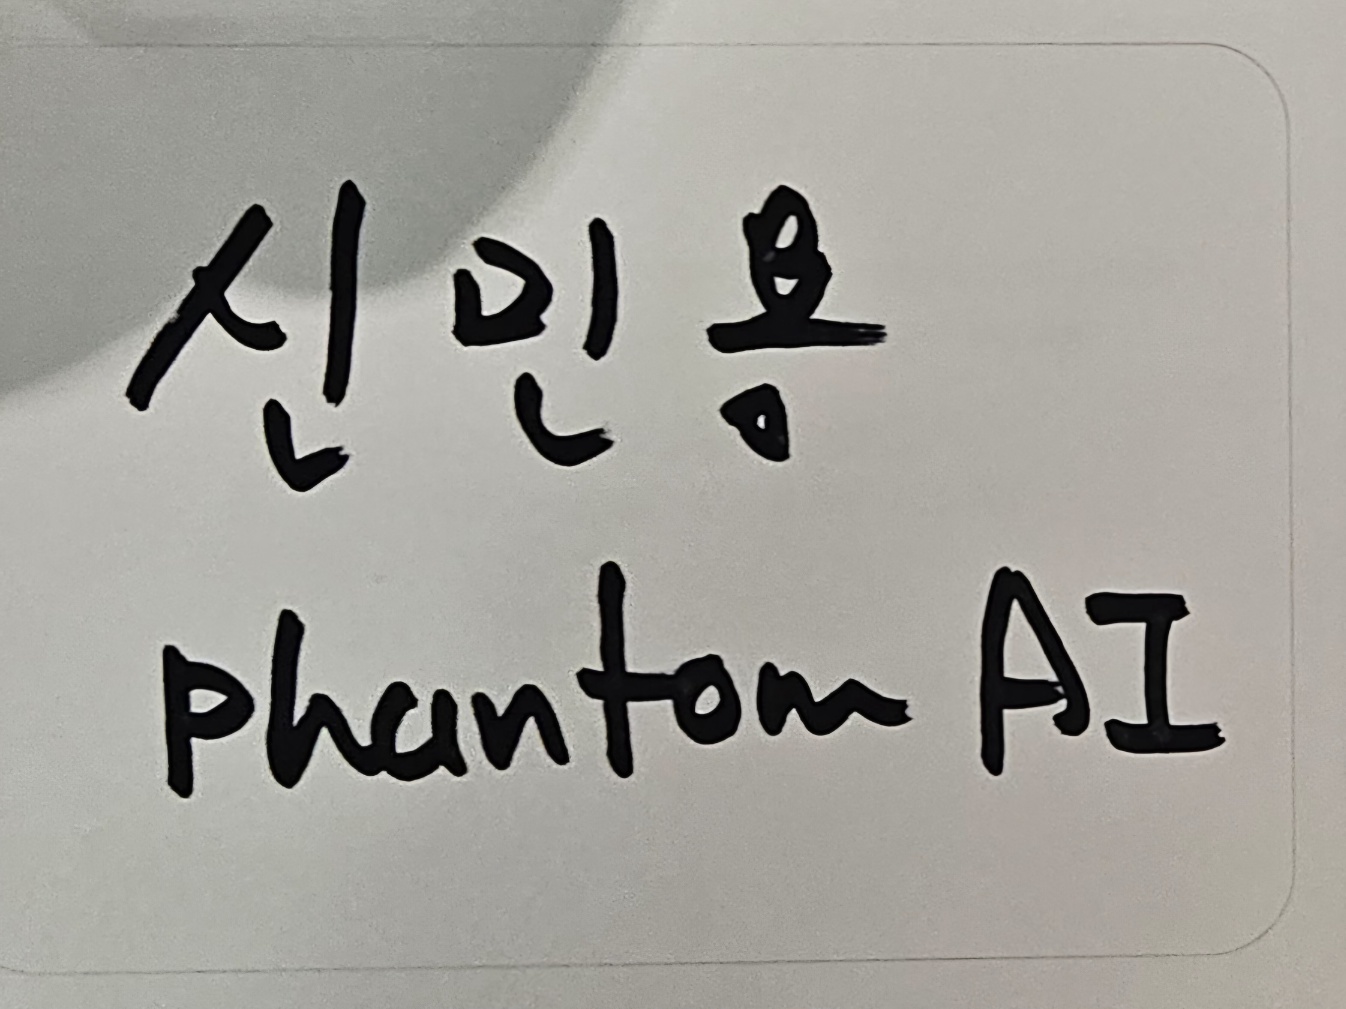 신민용
phantom AI